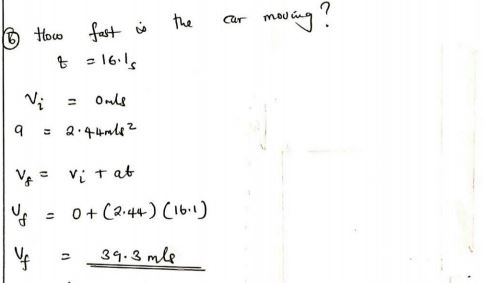 (b) How fast is the car moving?
t = 16.1s
Vi = 0 m/s
a = 2.44 m/s²
Vf = Vi + at
Vf = 0 + (2.44) (16.1)
Vf = 39.3 m/s